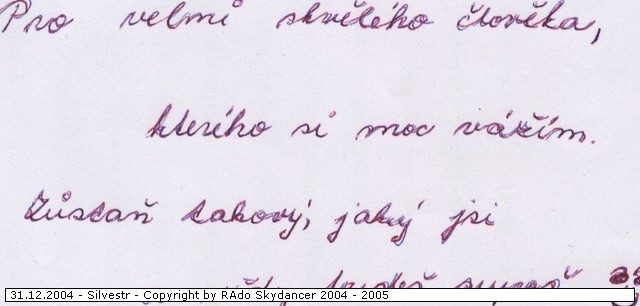 Pro velmi skvělého člověka,
kterého si moc vážím.
Zůstaň takový, jaký jsi
budeš
31.12.2004 - Silvestr - Copyright by RAdo Skydancer 2004 - 2005